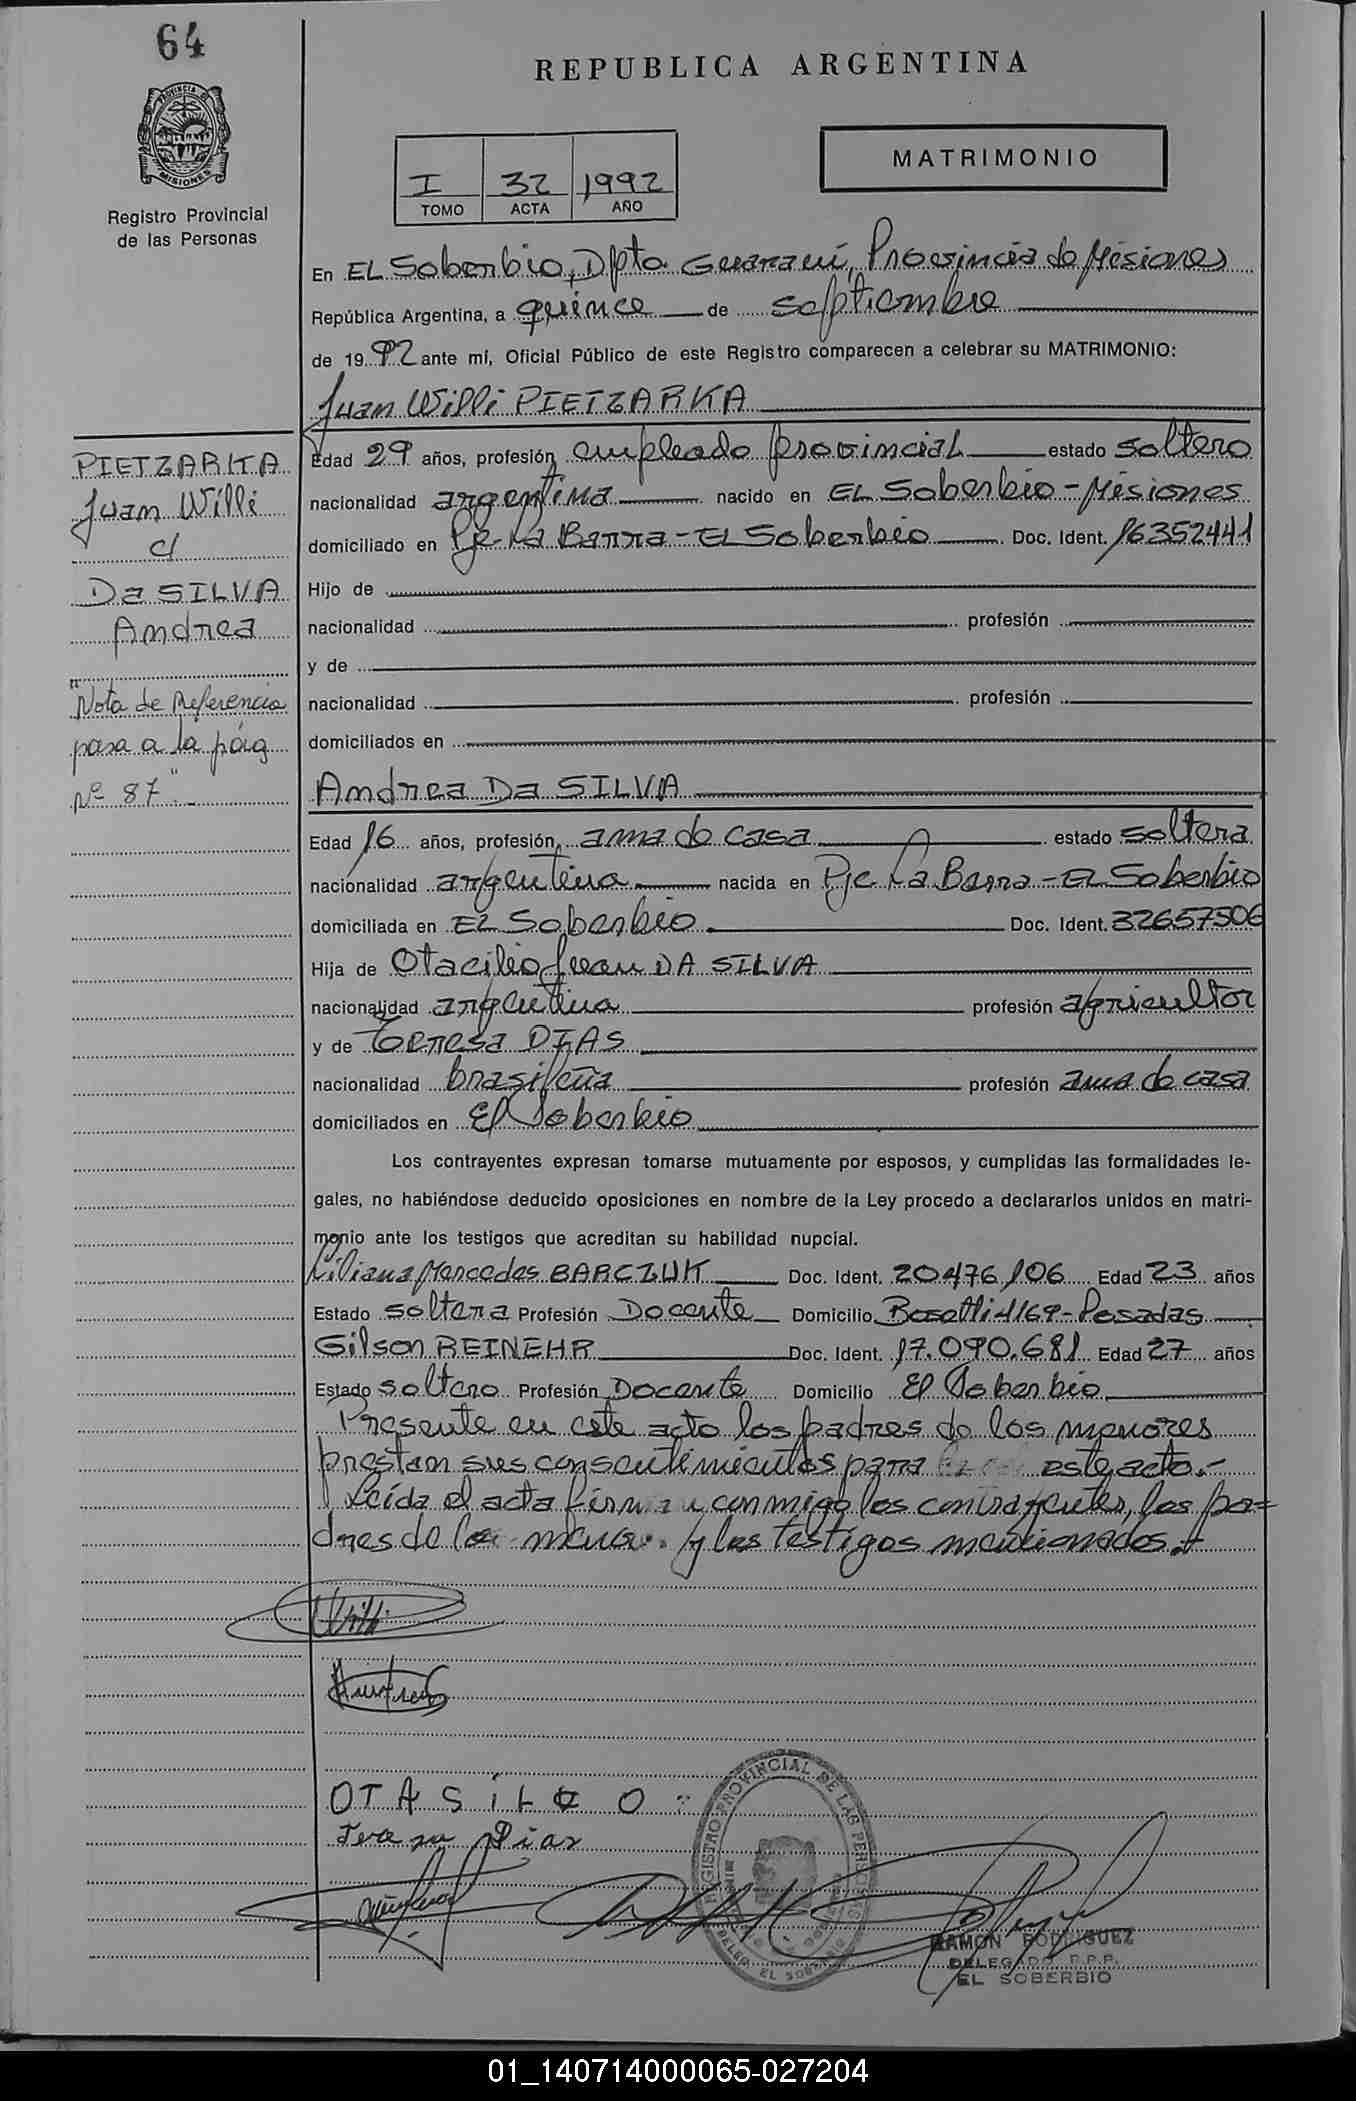 64
PROVINCIA DE MISIONES
Registro Provincial
de las Personas
REPUBLICA ARGENTINA
I 32 1992
TOMO ACTA AÑO
MATRIMONIO
En EL Soberbio, Dpto Guaraní, Provincia de Misiones
República Argentina, a quince de septiembre
de 1992 ante mí, Oficial Público de este Registro comparecen a celebrar su MATRIMONIO:
Juan Willi PIETZARKA
Edad 29 años, profesión empleado provincial estado soltero
nacionalidad argentina nacido en EL Soberbio - Misiones
domiciliado en Pje La Barra - EL Soberbio Doc. Ident. 16352441
Hijo de
nacionalidad profesión
y de
nacionalidad profesión
domiciliados en
Andrea Da SILVA
Edad 16 años, profesión ama de casa estado soltera
nacionalidad argentina nacida en Pje La Barra - EL Soberbio
domiciliada en EL Soberbio Doc. Ident. 32657506
Hija de Otacilio Juan DA SILVA
nacionalidad argentina profesión agricultor
y de Teresa DIAS
nacionalidad brasileña profesión ama de casa
domiciliados en El Soberbio
Los contrayentes expresan tomarse mutuamente por esposos, y cumplidas las formalidades le-
gales, no habiéndose deducido oposiciones en nombre de la Ley procedo a declararlos unidos en matri-
monio ante los testigos que acreditan su habilidad nupcial.
Liliana Mercedes BARCZUK Doc. Ident. 20476106 Edad 23 años
Estado soltera Profesión Docente Domicilio Bosetti 4169 - Posadas
Gilson REINEHR Doc. Ident. 17.090.681 Edad 27 años
Estado soltero Profesión Docente Domicilio El Soberbio
Presente en este acto los padres de los menores
prestan sus consentimientos para este acto.-
Leída el acta firman conmigo los contrayentes, los pa=
dres de los y los testigos mencionados.
PIETZARKA
Juan Willi
c/
Da SILVA
Andrea
"Nota de Referencia
pasa a la pág
Nº 87".-
Willi
OTASILIO
Teresa Dias
REGISTRO PROVINCIAL DE LAS PERSONAS
EL SOBERBIO
RAMON RODRIGUEZ
DELEGADO R.P.P.
EL SOBERBIO
01_140714000065-027204